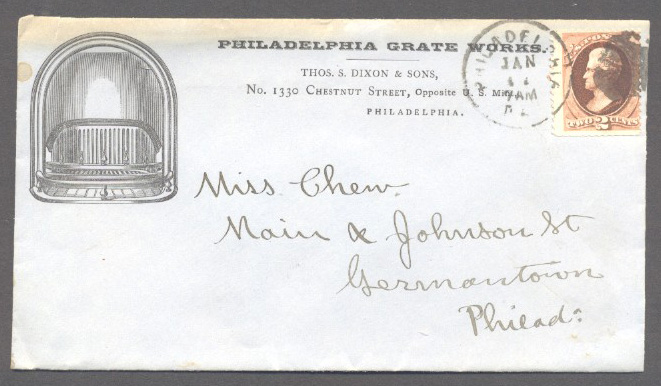 PHILADELPHIA GRATE WORKS.
THOS. S. DIXON & SONS,
No. 1330 CHESTNUT STREET, Opposite U. S. Mint,
PHILADELPHIA.
PHILADELPHIA
JAN
7AM
TWO 2 CENTS
Miss. Chew.
Main & Johnson St
Germantown
Philad: